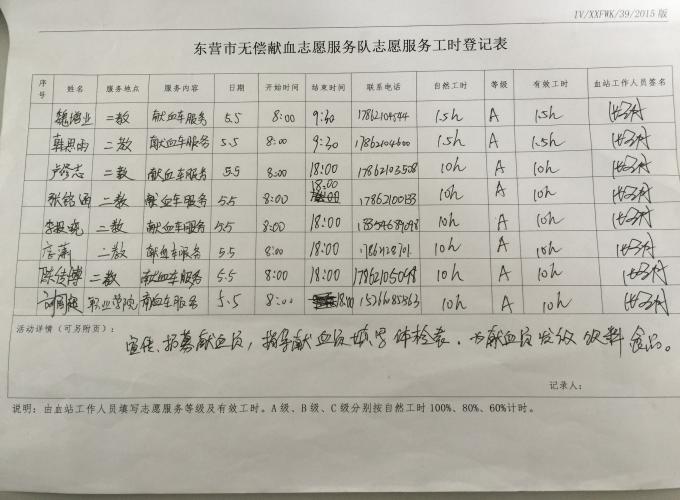 IV/XXFWK/39/2015 版
东营市无偿献血志愿服务队志愿服务工时登记表
序号 姓名 服务地点 服务内容 日期 开始时间 结束时间 联系电话 自然工时 等级 有效工时 血站工作人员签名
二数 献血车服务 5.5 8:00 9:30 17862104544 1.5h A 1.5h
韩思雨 二数 献血车服务 5.5 8:00 9:30 17862104600 1.5h A 1.5h
二数 献血车服务 5.5 8:00 18:00 17862103508 10h A 10h
张铭涵 二数 献血车服务 5.5 8:00 18:00 17862100133 10h A 10h
二数 献血车服务 5.5 8:00 18:00 10h A 10h
二数 献血车服务 5.5 8:00 18:00 10h A 10h
二数 献血车服务 5.5 8:00 18:00 17862105048 10h A 10h
职业学院 献血车服务 5.5 8:00 18:00 10h A 10h
活动详情（可另附页）：
宣传、招募献血员，指导献血员填写体检表，为献血员发放饮料食品。
记录人：
说明：由血站工作人员填写志愿服务等级及有效工时。A级、B级、C级分别按自然工时100%、80%、60%计时。